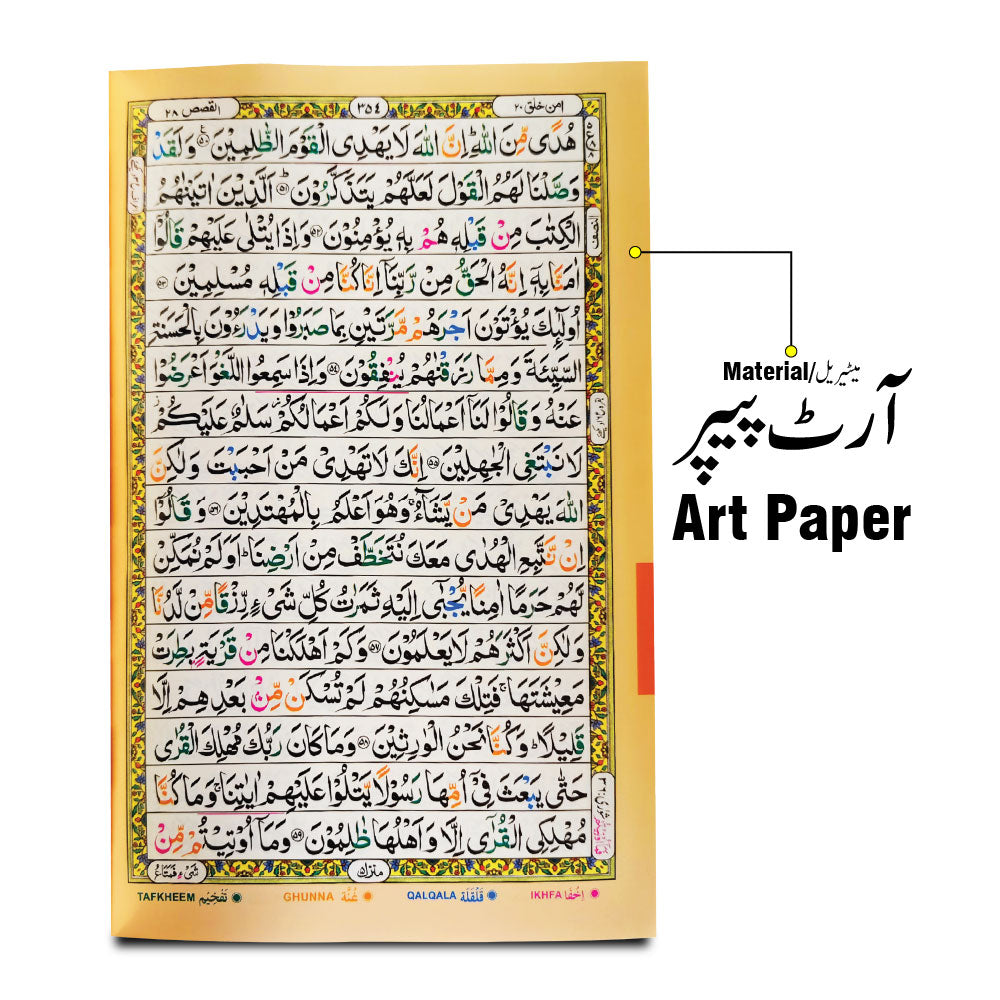 امن خلق ٢٠
٣٥٤
القصص ٢٨
هُدًى مِّنَ اللّٰهِ ؕ اِنَّ اللّٰهَ لَا يَهْدِى الْقَوْمَ الظّٰلِمِيْنَ ﴿۵۰﴾ وَلَقَدْ
وَصَّلْنَا لَهُمُ الْقَوْلَ لَعَلَّهُمْ يَتَذَكَّرُوْنَ ؕ﴿۵۱﴾ اَلَّذِيْنَ اٰتَيْنٰهُمُ
الْكِتٰبَ مِنْ قَبْلِهٖ هُمْ بِهٖ يُؤْمِنُوْنَ ﴿۵۲﴾ وَاِذَا يُتْلٰى عَلَيْهِمْ قَالُوْۤا
اٰمَنَّا بِهٖۤ اِنَّهُ الْحَقُّ مِنْ رَّبِّنَاۤ اِنَّا كُنَّا مِنْ قَبْلِهٖ مُسْلِمِيْنَ ﴿۵۳﴾
اُولٰٓئِكَ يُؤْتَوْنَ اَجْرَهُمْ مَّرَّتَيْنِ بِمَا صَبَرُوْا وَيَدْرَءُوْنَ بِالْحَسَنَةِ
السَّيِّئَةَ وَمِمَّا رَزَقْنٰهُمْ يُنْفِقُوْنَ ﴿۵۴﴾ وَاِذَا سَمِعُوا اللَّغْوَ اَعْرَضُوْا
عَنْهُ وَقَالُوْا لَنَاۤ اَعْمَالُنَا وَلَكُمْ اَعْمَالُكُمْ سَلٰمٌ عَلَيْكُمْ
لَا نَبْتَغِى الْجٰهِلِيْنَ ﴿۵۵﴾ اِنَّكَ لَا تَهْدِىْ مَنْ اَحْبَبْتَ وَلٰكِنَّ
اللّٰهَ يَهْدِىْ مَنْ يَّشَآءُ ۚ وَهُوَ اَعْلَمُ بِالْمُهْتَدِيْنَ ﴿۵۶﴾ وَقَالُوْۤا
اِنْ نَّتَّبِعِ الْهُدٰى مَعَكَ نُتَخَطَّفْ مِنْ اَرْضِنَا ؕ اَوَلَمْ نُمَكِّنْ
لَّهُمْ حَرَمًا اٰمِنًا يُّجْبٰٓى اِلَيْهِ ثَمَرٰتُ كُلِّ شَىْءٍ رِّزْقًا مِّنْ لَّدُنَّا
وَلٰكِنَّ اَكْثَرَهُمْ لَا يَعْلَمُوْنَ ﴿۵۷﴾ وَكَمْ اَهْلَكْنَا مِنْ قَرْيَةٍۭ بَطِرَتْ
مَعِيْشَتَهَا ۚ فَتِلْكَ مَسٰكِنُهُمْ لَمْ تُسْكَنْ مِّنْۢ بَعْدِهِمْ اِلَّا
قَلِيْلًا ؕ وَكُنَّا نَحْنُ الْوٰرِثِيْنَ ﴿۵۸﴾ وَمَا كَانَ رَبُّكَ مُهْلِكَ الْقُرٰى
حَتّٰى يَبْعَثَ فِىْۤ اُمِّهَا رَسُوْلًا يَّتْلُوْا عَلَيْهِمْ اٰيٰتِنَا ۚ وَمَا كُنَّا
مُهْلِكِى الْقُرٰٓى اِلَّا وَاَهْلُهَا ظٰلِمُوْنَ ﴿۵۹﴾ وَمَاۤ اُوْتِيْتُمْ مِّنْ
النصف
منزل
شَىْءٍ فَمَتَاعُ
IKHFA اِخْفَا
QALQALA قَلْقَلَة
GHUNNA غُنَّة
TAFKHEEM تَفْخِيْم
Material/میٹیریل
آرٹ پیپر
Art Paper